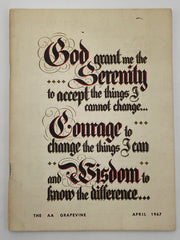 God grant me the
Serenity
to accept the things I
cannot change...
Courage to
change the things I can
and Wisdom to
know the difference...
THE AA GRAPEVINE APRIL 1967